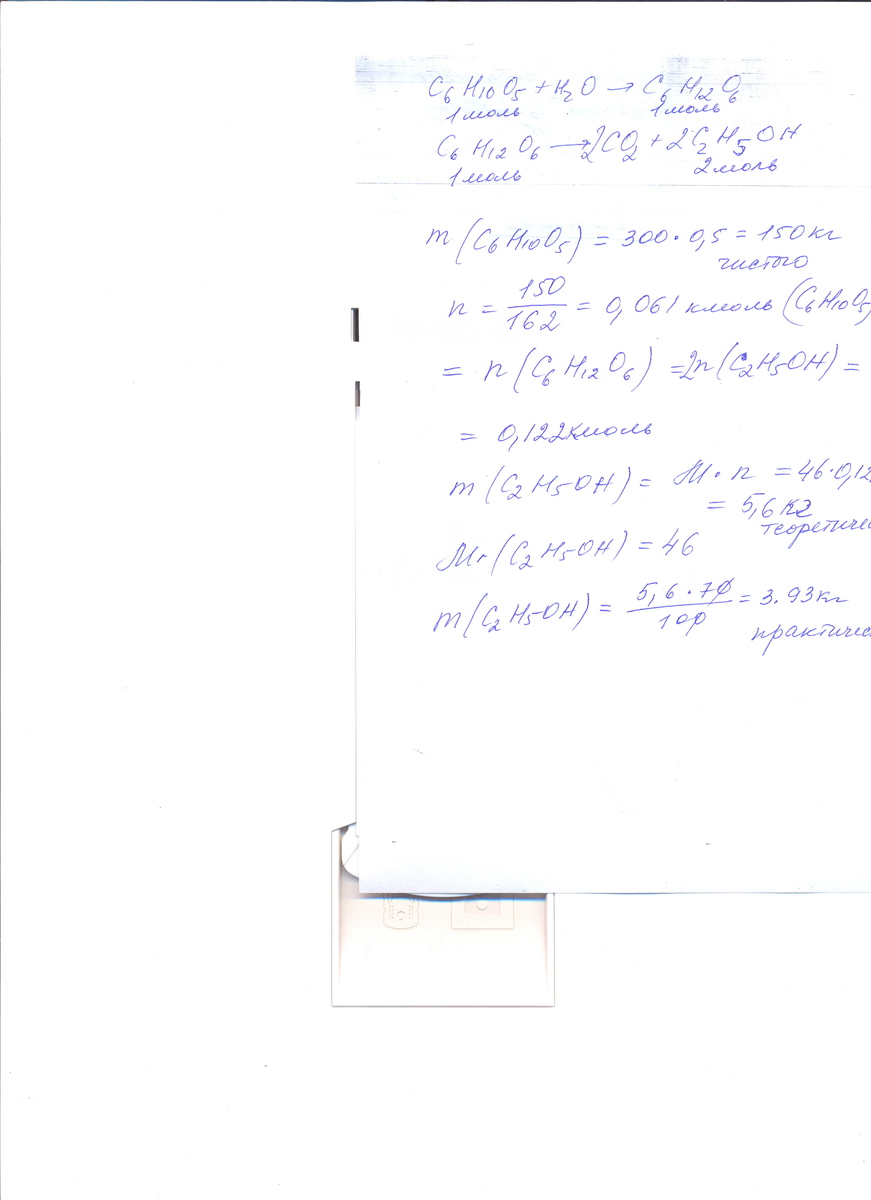 C6H10O5 + H2O → C6H12O6
1моль 1моль
C6H12O6 → 2CO2 + 2C2H5OH
1моль 2моль
m(C6H10O5) = 300·0,5 = 150кг
чистого
n = 150/162 = 0,061 кмоль (C6H10O5)
= n(C6H12O6) = 2n(C2H5OH) =
= 0,122кмоль
m(C2H5OH) = M·n = 46·0,12
= 5,6 кг
теоретичес
Mr(C2H5OH) = 46
m(C2H5OH) = 5,6·70/100 = 3.93кг
практичес